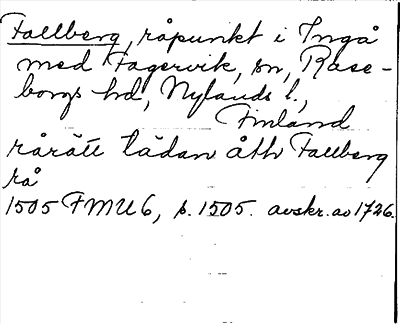 Fallberg, råpunkt i Ingå
med Fagervik, sn, Rase-
borgs hd, Nylands l.,
Finland
rårätt tädan åth Fallberg
rå
1505 FMU 6, s. 1505. avskr. av 1726.